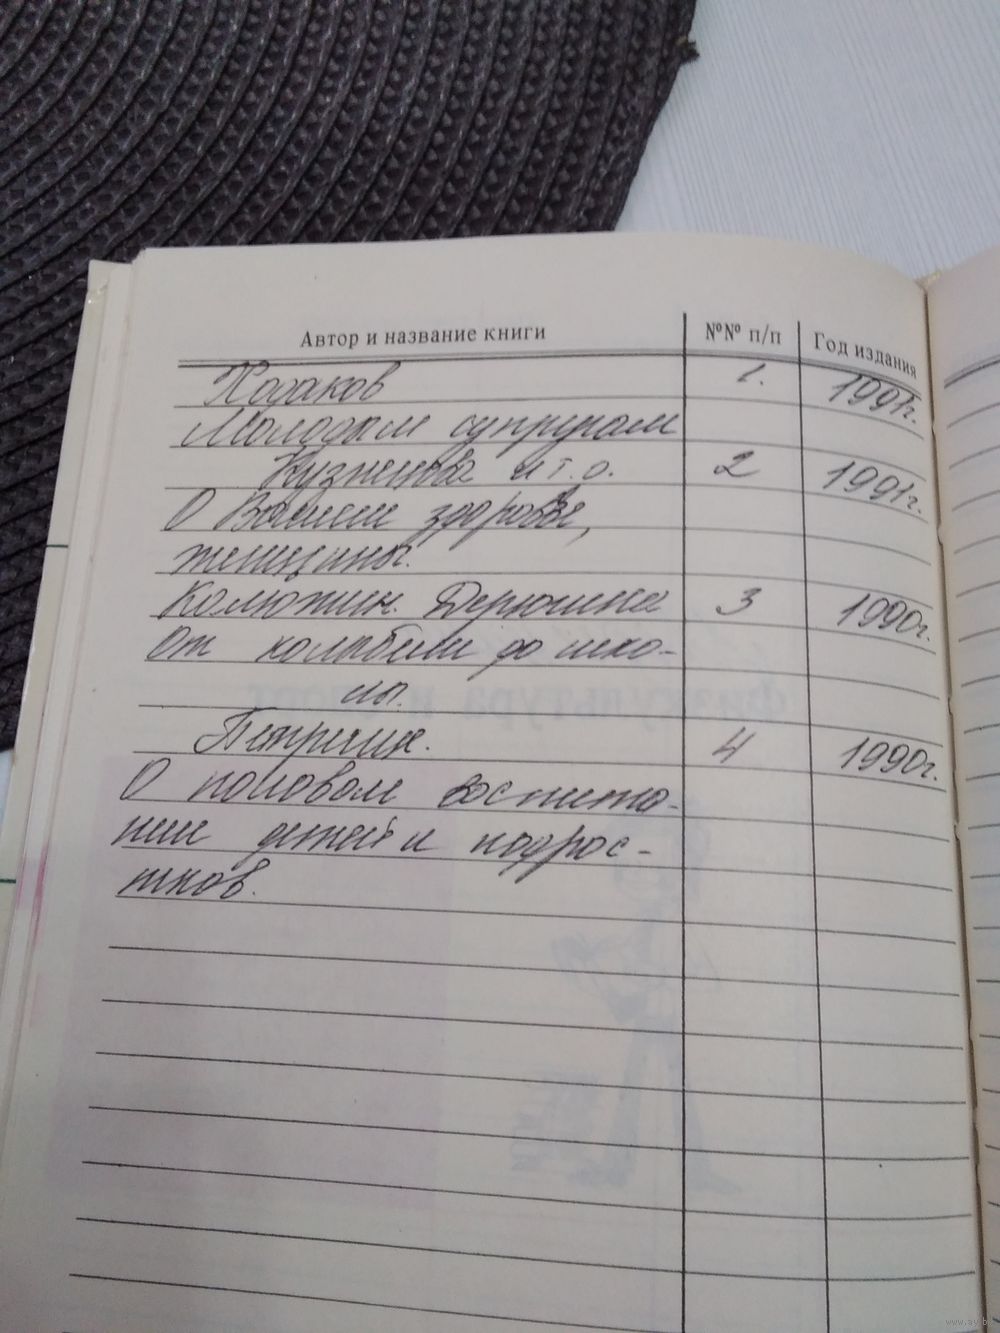 Автор и название книги №№ п/п Год издания
Ходаков 1. 1991г.
Молодым супругам
Кузнецова и т.о. 2 1991г.
О Вашем здоровье,
женщины.
Дерюгина 3 1990г.
От колыбели до шко-
лы.
4 1990г.
О половом воспита-
нии детей и подрос-
тков.
физкультура и спорт